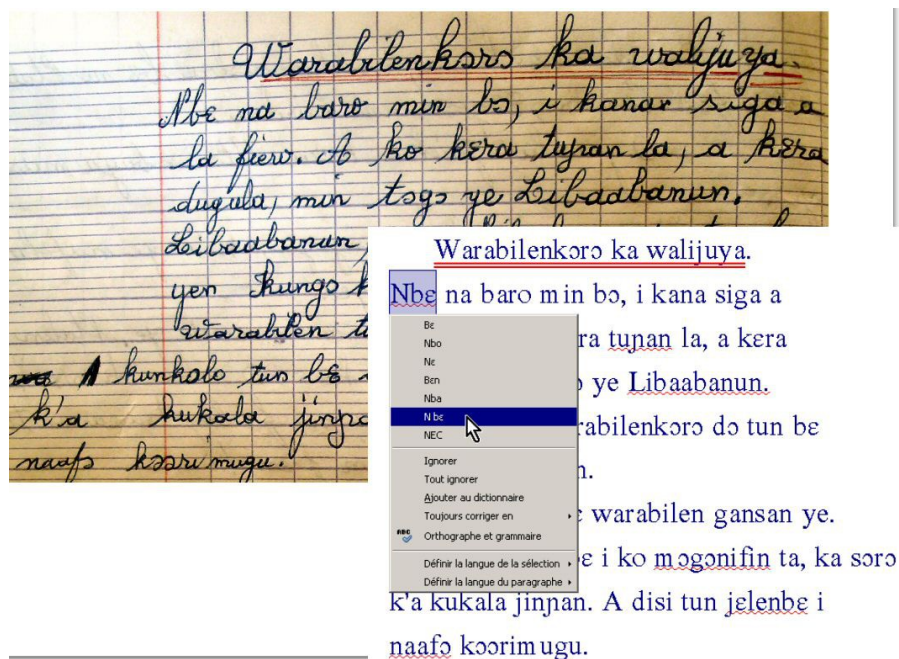 Warabilenkɔrɔ ka walijuya.
Nbɛ na baro min bɔ, i kanar siga a
la fiew. A ko kɛra tuɲan la, a kɛra
dugula, min tɔgɔ ye Libaabanun.
Libaabanun,
yen kungo
warabilen
A kunkolo tun bɛ
k'a kukala
naafɔ kɔɔrimugu.
Warabilenkɔrɔ ka walijuya.
Nbɛ na baro min bɔ, i kana siga a
ra tuɲan la, a kɛra
ye Libaabanun.
rabilenkɔrɔ dɔ tun bɛ
warabilen gansan ye.
i ko mɔgɔnifin ta, ka sɔrɔ
k'a kukala jinɲan. A disi tun jɛlenbɛ i
naafɔ kɔɔrimugu.
Bɛ
Nbo
Nɛ
Bɛn
Nba
N bɛ
NEC
Ignorer
Tout ignorer
Ajouter au dictionnaire
Toujours corriger en
ABC Orthographe et grammaire
Définir la langue de la sélection
Définir la langue du paragraphe